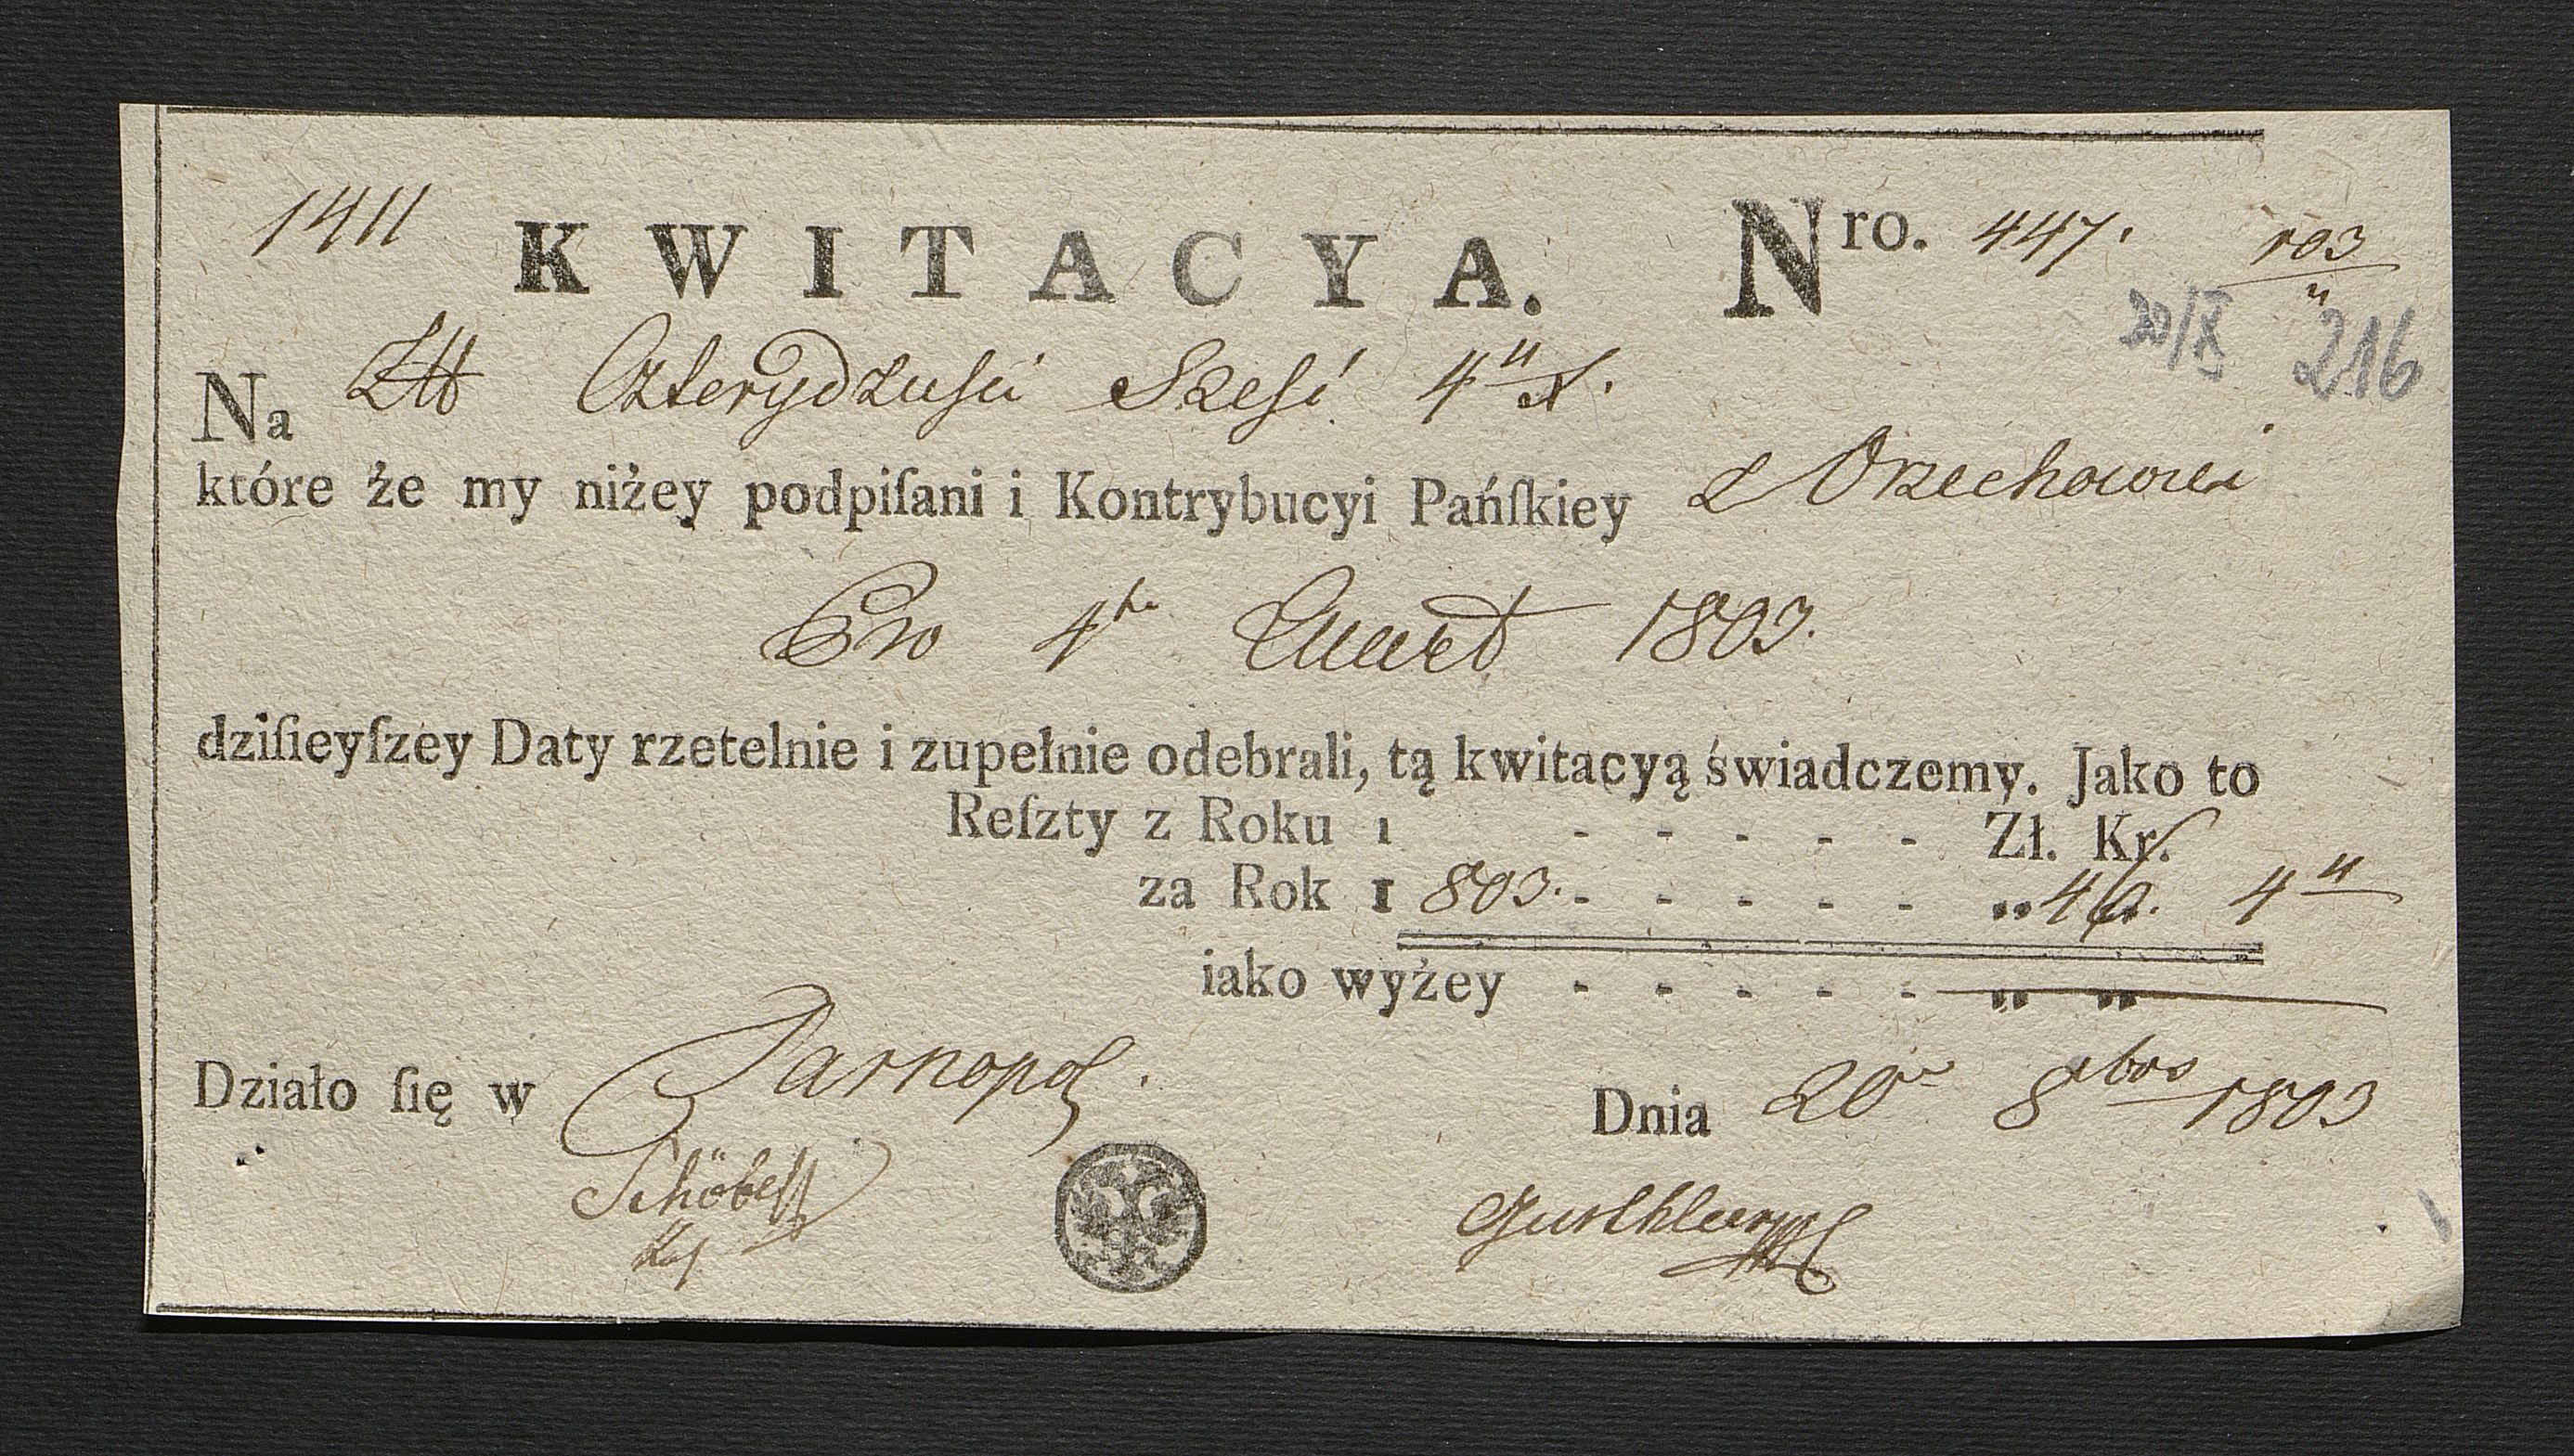 1411 KWITACYA. Nro. 447. 103
20/X 216
Na Złł Czterydziesci Szesć 4 x.
które że my niżey podpiſani i Kontrybucyi Pańſkiey z Orzechowiei
Pro 4te Quart 1803.
dziſieyſzey Daty rzetelnie i zupełnie odebrali, tą kwitacyą świadczemy. Jako to
Reſzty z Roku 1 - - - - - Zł. Kr.
za Rok 1803. - - - - - 46. 4
iako wyżey - - - - -
Działo ſię w Tarnopol. Dnia 20 8bris 1803
Schöbell